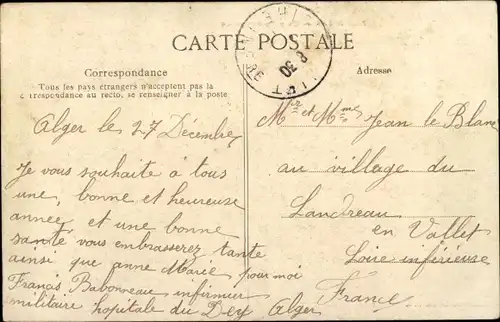 CARTE POSTALE
Correspondance
Tous les pays étrangers n'acceptent pas la
correspondance au recto, se renseigner à la poste
Alger les 27 Décembre
Je vous souhaite à tous
une, bonne et heureuse
année, et une bonne
santé vous embrasserez tante
ainsi que anne Marie pour moi
Francis Babonneau infirmier
militaire hopitale du Dey Alger
Adresse
Mr et Mme Jean le Blanc
au village du
Landreau
en Vallet
Loire inférieure
France
8 30